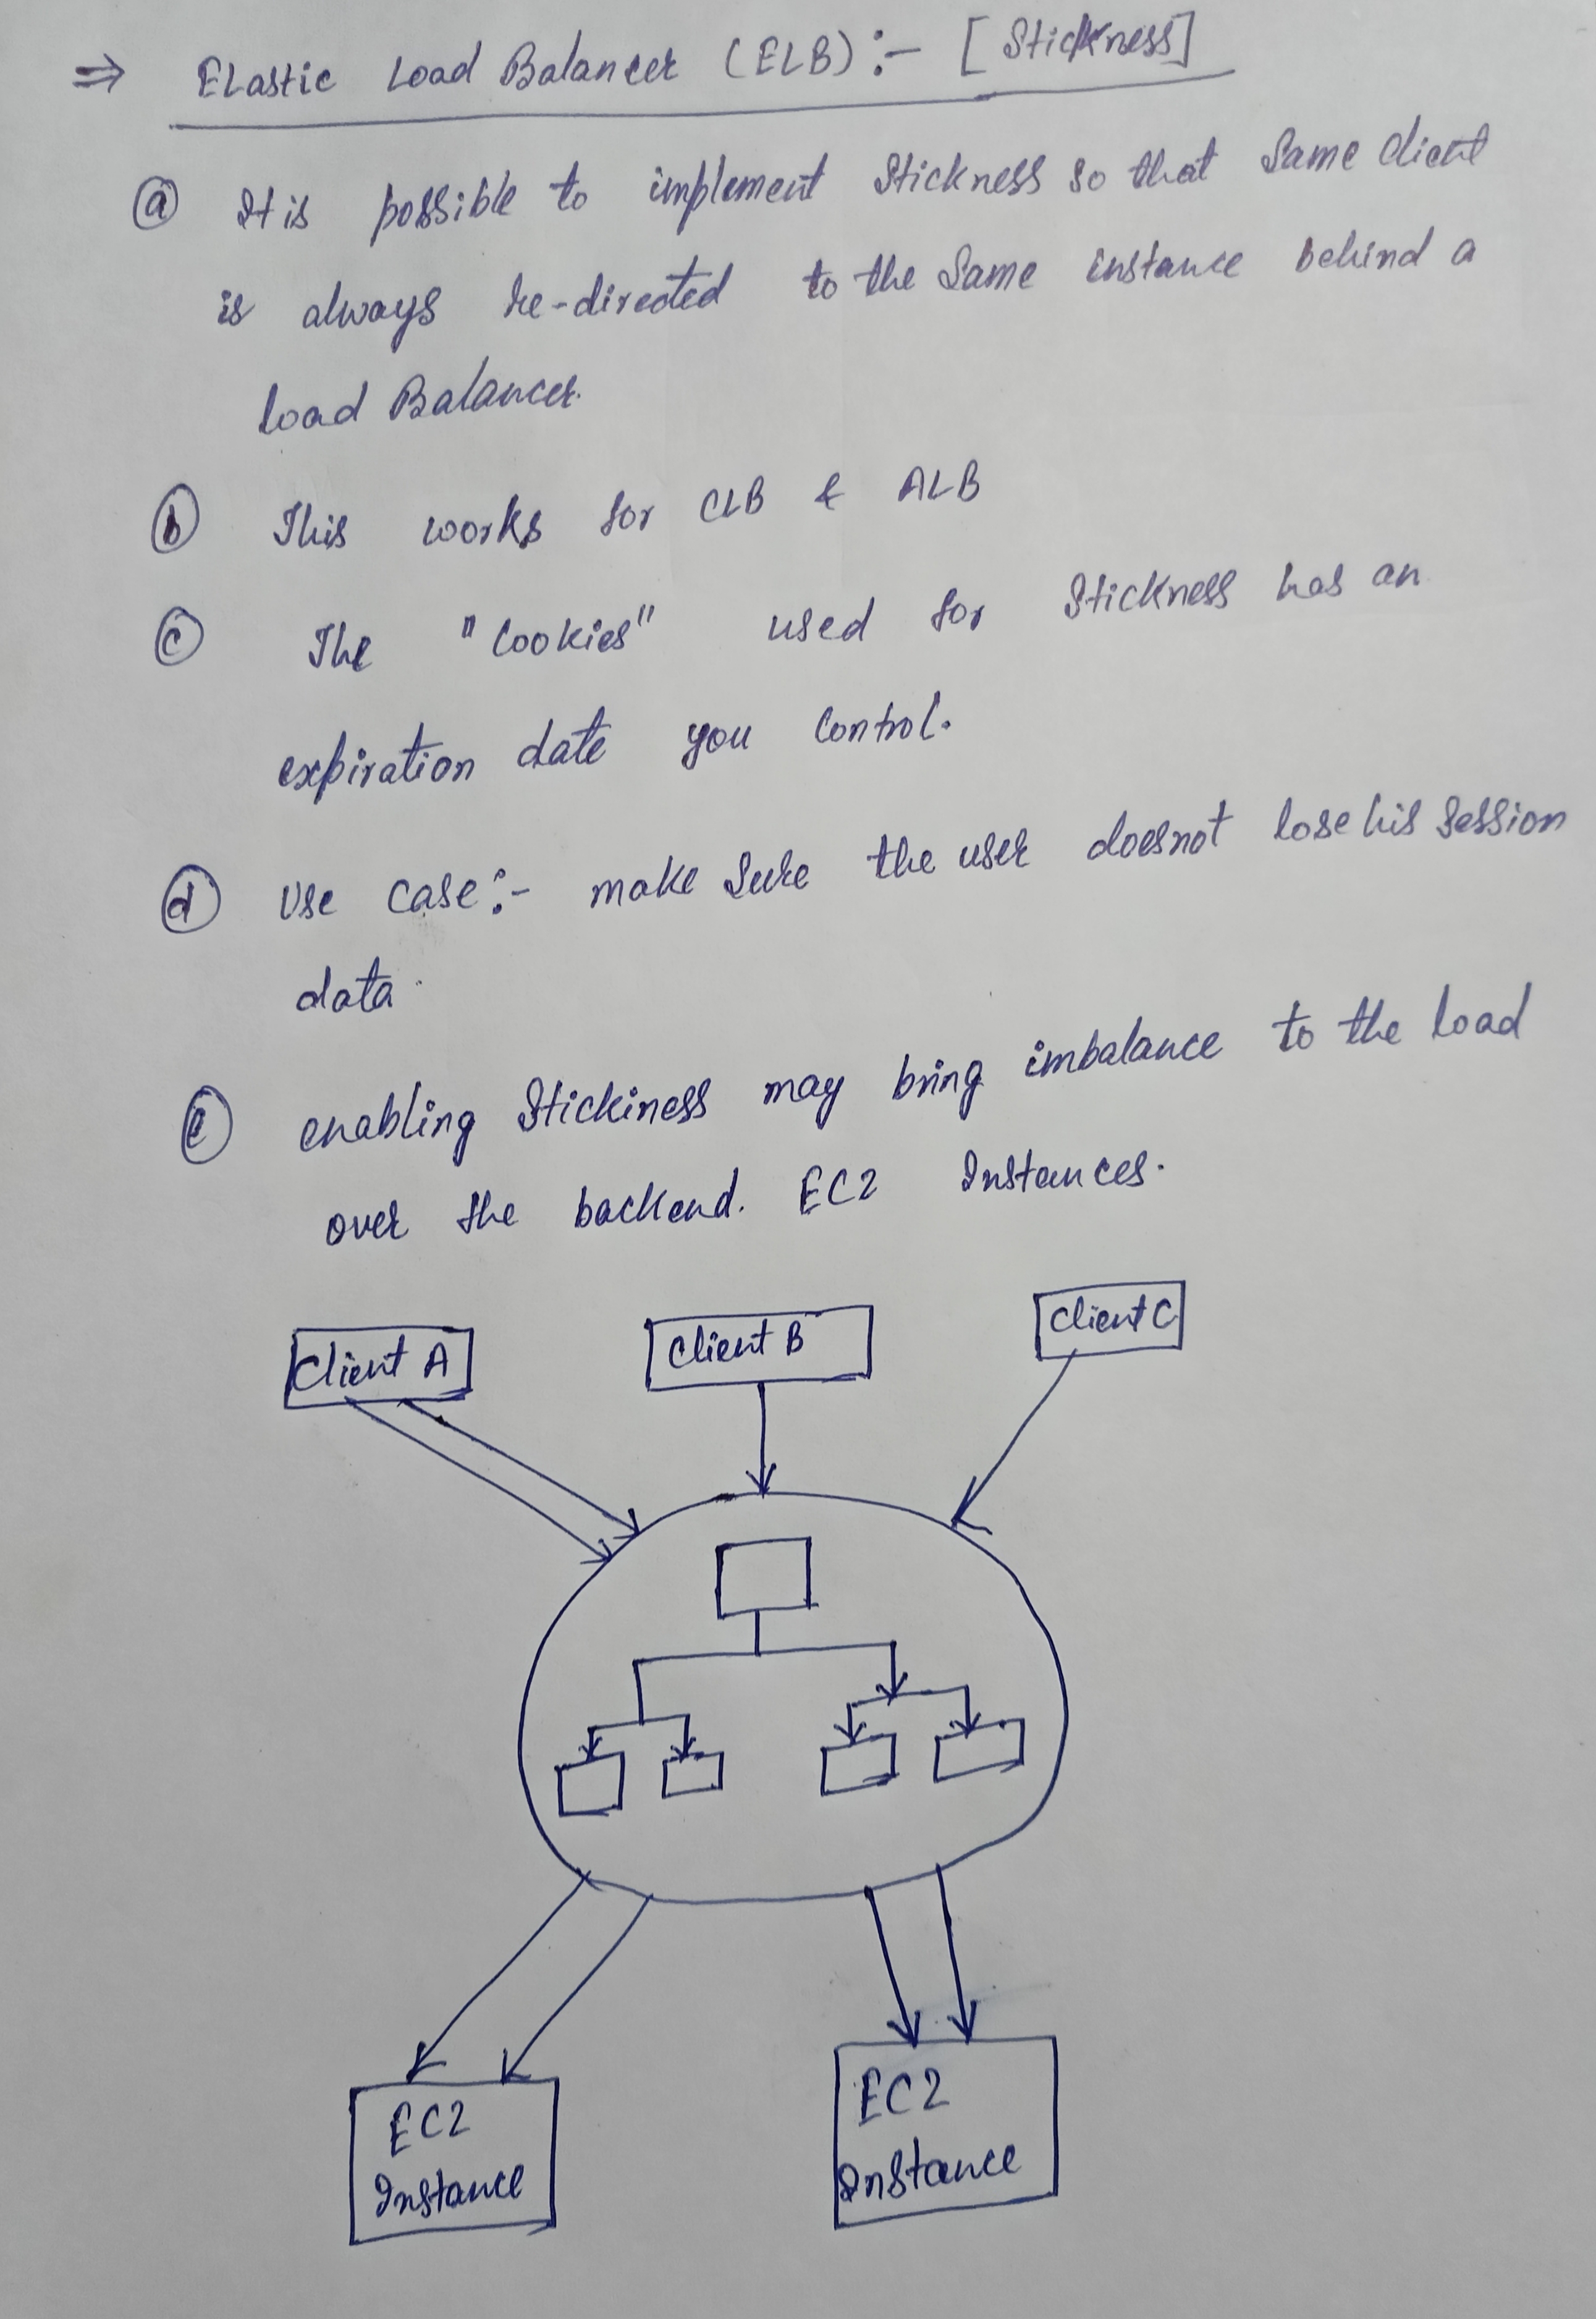 ⇒ Elastic Load Balancer (ELB):- [Stickness]
(a) It is possible to implement Stickness so that same client
is always re-directed to the same instance behind a
load Balancer.
(b) This works for CLB & ALB
(c) The "Cookies" used for Stickness has an
expiration date you control.
(d) Use case:- make sure the user doesnot lose his session
data.
(e) enabling Stickiness may bring imbalance to the load
over the backend. EC2 Instances.
Client A Client B Client C
EC2 EC2
Instance Instance